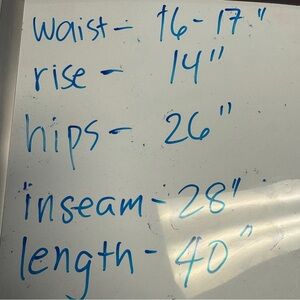 waist - 16-17"
rise - 14"
hips - 26"
inseam - 28"
length - 40"